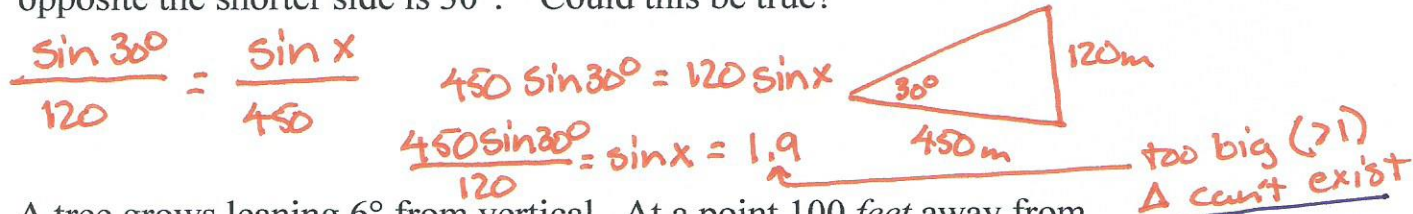 opposite the shorter side is 30°. Could this be true?
sin 30° / 120 = sin x / 450
450 sin30° = 120 sinx
30°
120m
450m
450sin30° / 120 = sinx = 1.9
too big (>1)
Δ can't exist
A tree grows leaning 6° from vertical. At a point 100 feet away from